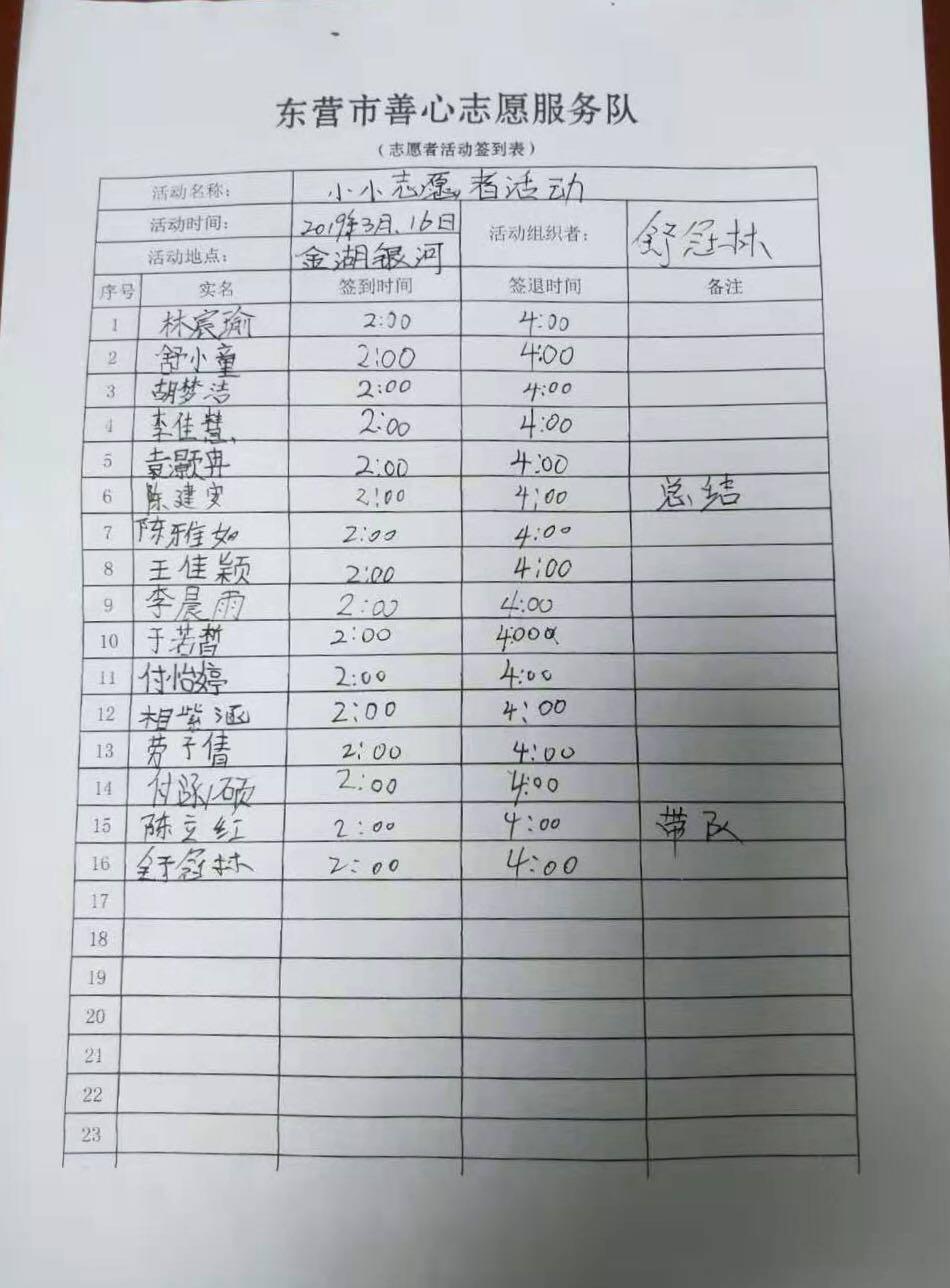 东营市善心志愿服务队
（志愿者活动签到表）
活动名称： 小小志愿者活动
活动时间： 2019年3月.16日 活动组织者： 舒冠林
活动地点： 金湖银河
序号 实名 签到时间 签退时间 备注
1 林宸瑜 2:00 4:00
2 舒小童 2:00 4:00
3 胡梦洁 2:00 4:00
4 李佳慧 2:00 4:00
5 袁灏冉 2:00 4:00
6 陈建安 2:00 4:00 总结
7 陈雅如 2:00 4:00
8 王佳颖 2:00 4:00
9 李晨雨 2:00 4:00
10 于若暂 2:00 4:00
11 付怡婷 2:00 4:00
12 相紫涵 2:00 4:00
13 劳子倩 2:00 4:00
14 2:00 4:00
15 陈立红 2:00 4:00 带队
16 舒冠林 2:00 4:00
17
18
19
20
21
22
23